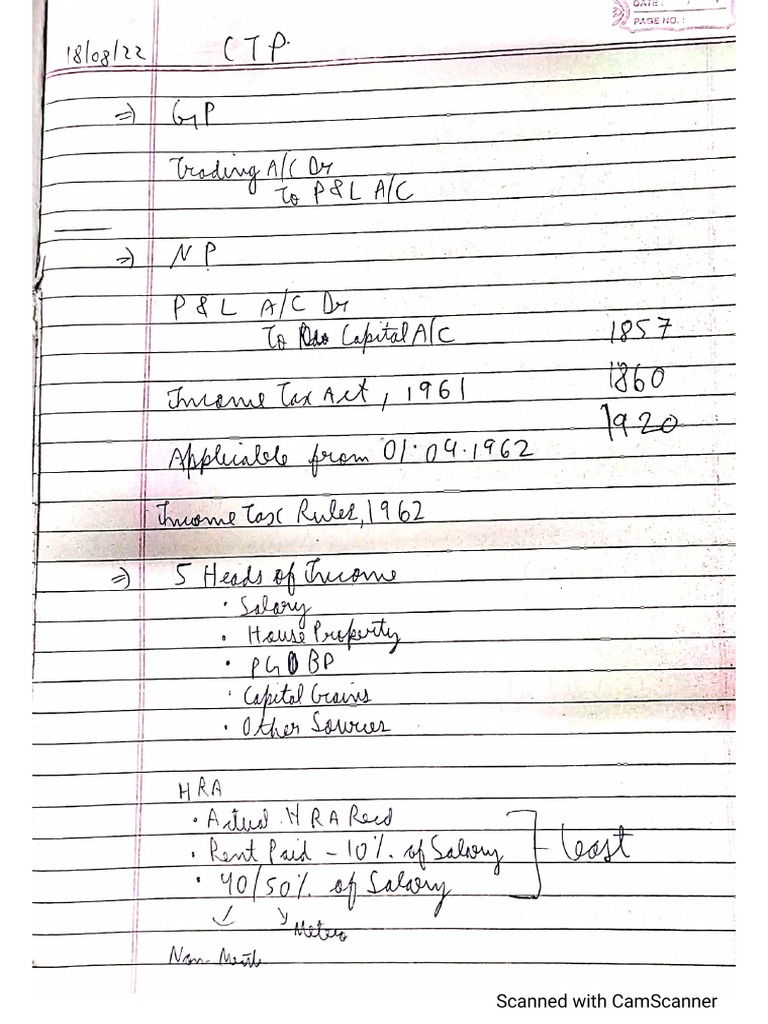 DATE: / /
PAGE NO.:
18/08/22 CTP.
⇒ GP
Trading A/C Dr
To P&L A/C
⇒ NP
P & L A/C Dr
To Capital A/C 1857
Income Tax Act, 1961 1860
1920
Applicable from 01.04.1962
Income Tax Rules, 1962
⇒ 5 Heads of Income
• Salary
• House Property
• PGBP
• Capital Gains
• Other Sources
HRA
• Actual HRA Recd
• Rent Paid - 10% of Salary least
• 40/50% of Salary
Metro
Non-Metro
Scanned with CamScanner